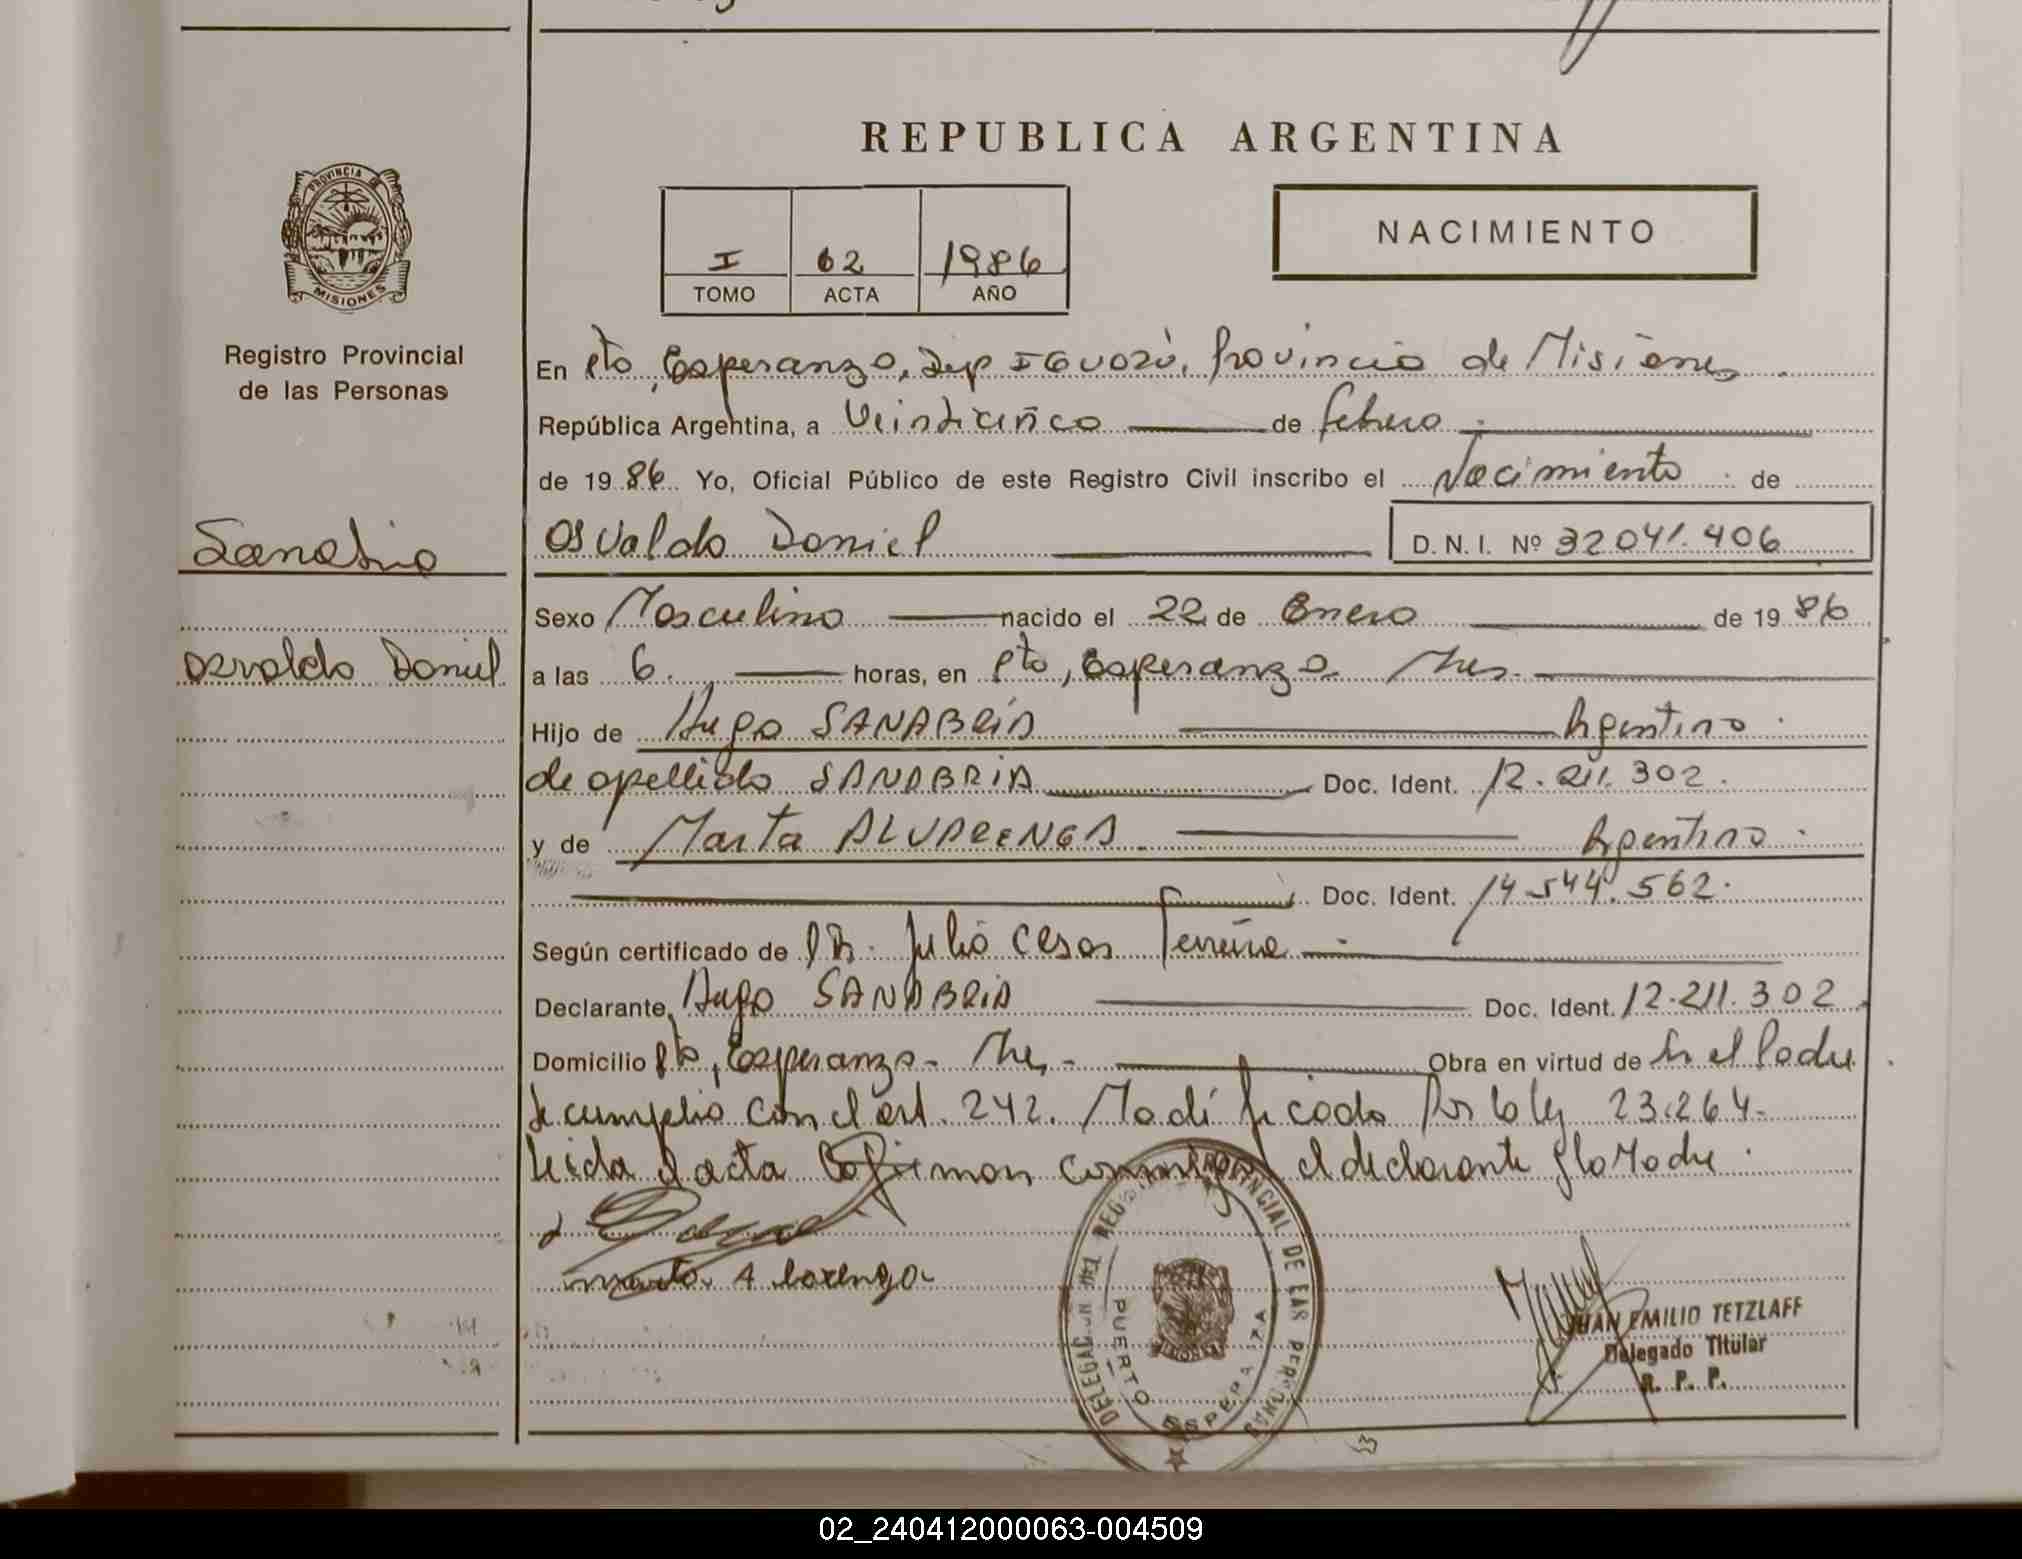 REPUBLICA ARGENTINA
PROVINCIA DE
MISIONES
Registro Provincial
de las Personas
I 62 1986
TOMO ACTA AÑO
NACIMIENTO
En Pto, Esperanza, Dep IGUAZÚ, Provincia de Misiones
República Argentina, a Veinticinco de febrero
de 1986 Yo, Oficial Público de este Registro Civil inscribo el Nacimiento de
Sanabria
Osvaldo Daniel D. N. I. Nº 32041.406
Sexo Masculino nacido el 22 de Enero de 1986
Osvaldo Daniel
a las 6. horas, en Pto, Esperanza Mnes.
Hijo de Hugo SANABRIA Argentino
de apellido SANABRIA Doc. Ident. 12.211.302.
y de Marta ALVARENGA Argentina
Doc. Ident. 14544.562.
Según certificado de Julio Cesar
Declarante Hugo SANABRIA Doc. Ident. 12.211.302
Domicilio Pto, Esperanza - Mnes - Obra en virtud de Ser el Padre
Se cumplio con el art. 242. Modificado Por la ley 23.264-
Leida el acta La firman conmigo el declarante y la Madre
marta A
DELEGACION DEL REGISTRO PROVINCIAL DE LAS PERSONAS
PUERTO ESPERANZA
JUAN EMILIO TETZLAFF
Delegado Titular
R. P. P.
02_240412000063-004509